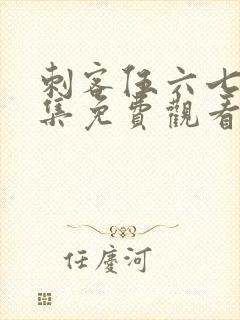 刺客伍六七
集免費觀看
任慶河